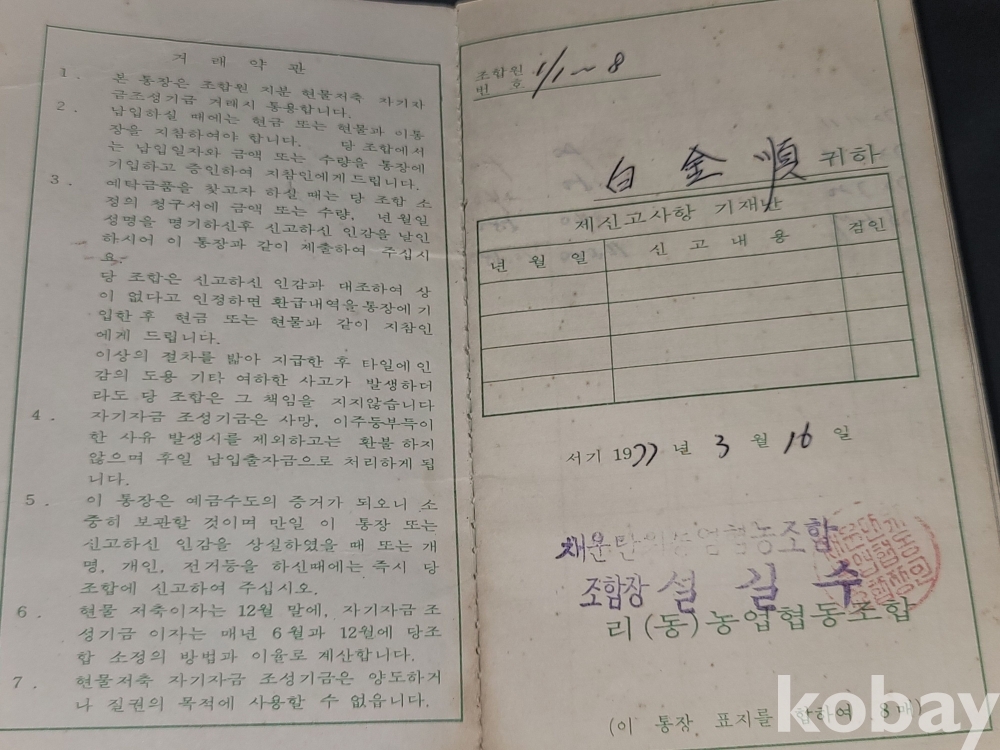 거 래 약 관
1. 본 통장은 조합원 지분 현물저축 자기자
금조성기금 거래시 통용합니다.
2. 납입하실 때에는 현금 또는 현물과 이통
장을 지참하여야 합니다. 당 조합에서
는 납입일자와 금액 또는 수량을 통장에
기입하고 증인하여 지참인에게 드립니다.
3. 예탁금품을 찾고자 하실 때는 당 조합 소
정의 청구서에 금액 또는 수량, 년월일
성명을 명기하신후 신고하신 인감을 날인
하시어 이 통장과 같이 제출하여 주십시
요.
당 조합은 신고하신 인감과 대조하여 상
이 없다고 인정하면 환급내역을 통장에 기
입한 후 현금 또는 현물과 같이 지참인
에게 드립니다.
이상의 절차를 밟아 지급한 후 타일에 인
감의 도용 기타 여하한 사고가 발생하더
라도 당 조합은 그 책임을 지지않습니다
4. 자기자금 조성기금은 사망, 이주등부득이
한 사유 발생시를 제외하고는 환불 하지
않으며 후일 납입출자금으로 처리하게 됩
니다.
5. 이 통장은 예금수도의 증거가 되오니 소
중히 보관할 것이며 만일 이 통장 또는
신고하신 인감을 상실하였을 때 또는 개
명, 개인, 전거등을 하신때에는 즉시 당
조합에 신고하여 주십시오.
6. 현물 저축이자는 12월 말에, 자기자금 조
성기금 이자는 매년 6월과 12월에 당조
합 소정의 방법과 이율로 계산합니다.
7. 현물저축 자기자금 조성기금은 양도하거
나 질권의 목적에 사용할 수 없읍니다.
조합원
번 호 1/1~8
白 金 順 귀하
제신고사항 기재난
년 월 일 신 고 내 용 검인
서기 1977년 3월 16일
농업협동조합
조합장 설 길 수
리(동)농업협동조합
(이 통장, 표지를 합하여 8매)
kobay